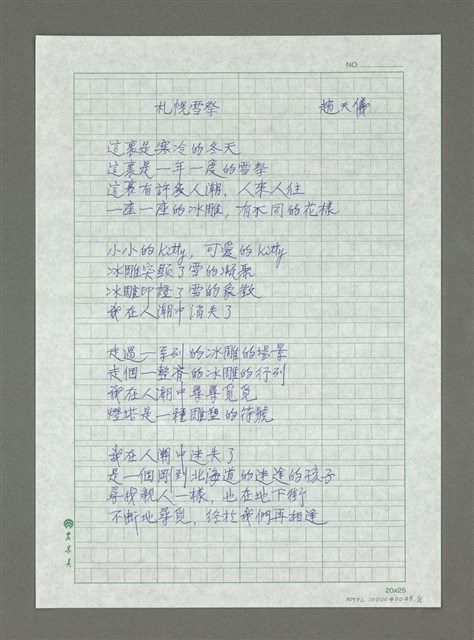 NO
札幌雪祭 趙天儀
這裏是寒冷的冬天
這裏是一年一度的雪祭
這裏有許多人潮，人來人往
一座一座的冰雕，有不同的花樣
小小的Kitty，可愛的Kitty
冰雕突顯了雪的凝聚
冰雕印證了雪的象徵
我在人潮中消失了
走過一系列的冰雕的場景
走個一整齊的冰雕的行列
我在人潮中尋尋覓覓
燈塔是一種雕塑的符號
我在人潮中迷失了
是一個剛到北海道的迷途的孩子
尋找親人一樣，也在地下街
不斷地尋覓，終於我們再相逢
20x25